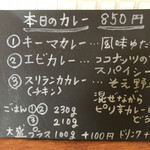 本日のカレー 850円
① キーマカレー…風味ゆた
② エビカレー…ココナッツの
スパイシー
③ スリランカカレー…そえ野菜
(チキン) 混ぜながら
ピリ辛カレー
ごはん ①② 230g
③ 210g
大盛プラス100g +100円 ドリンク+